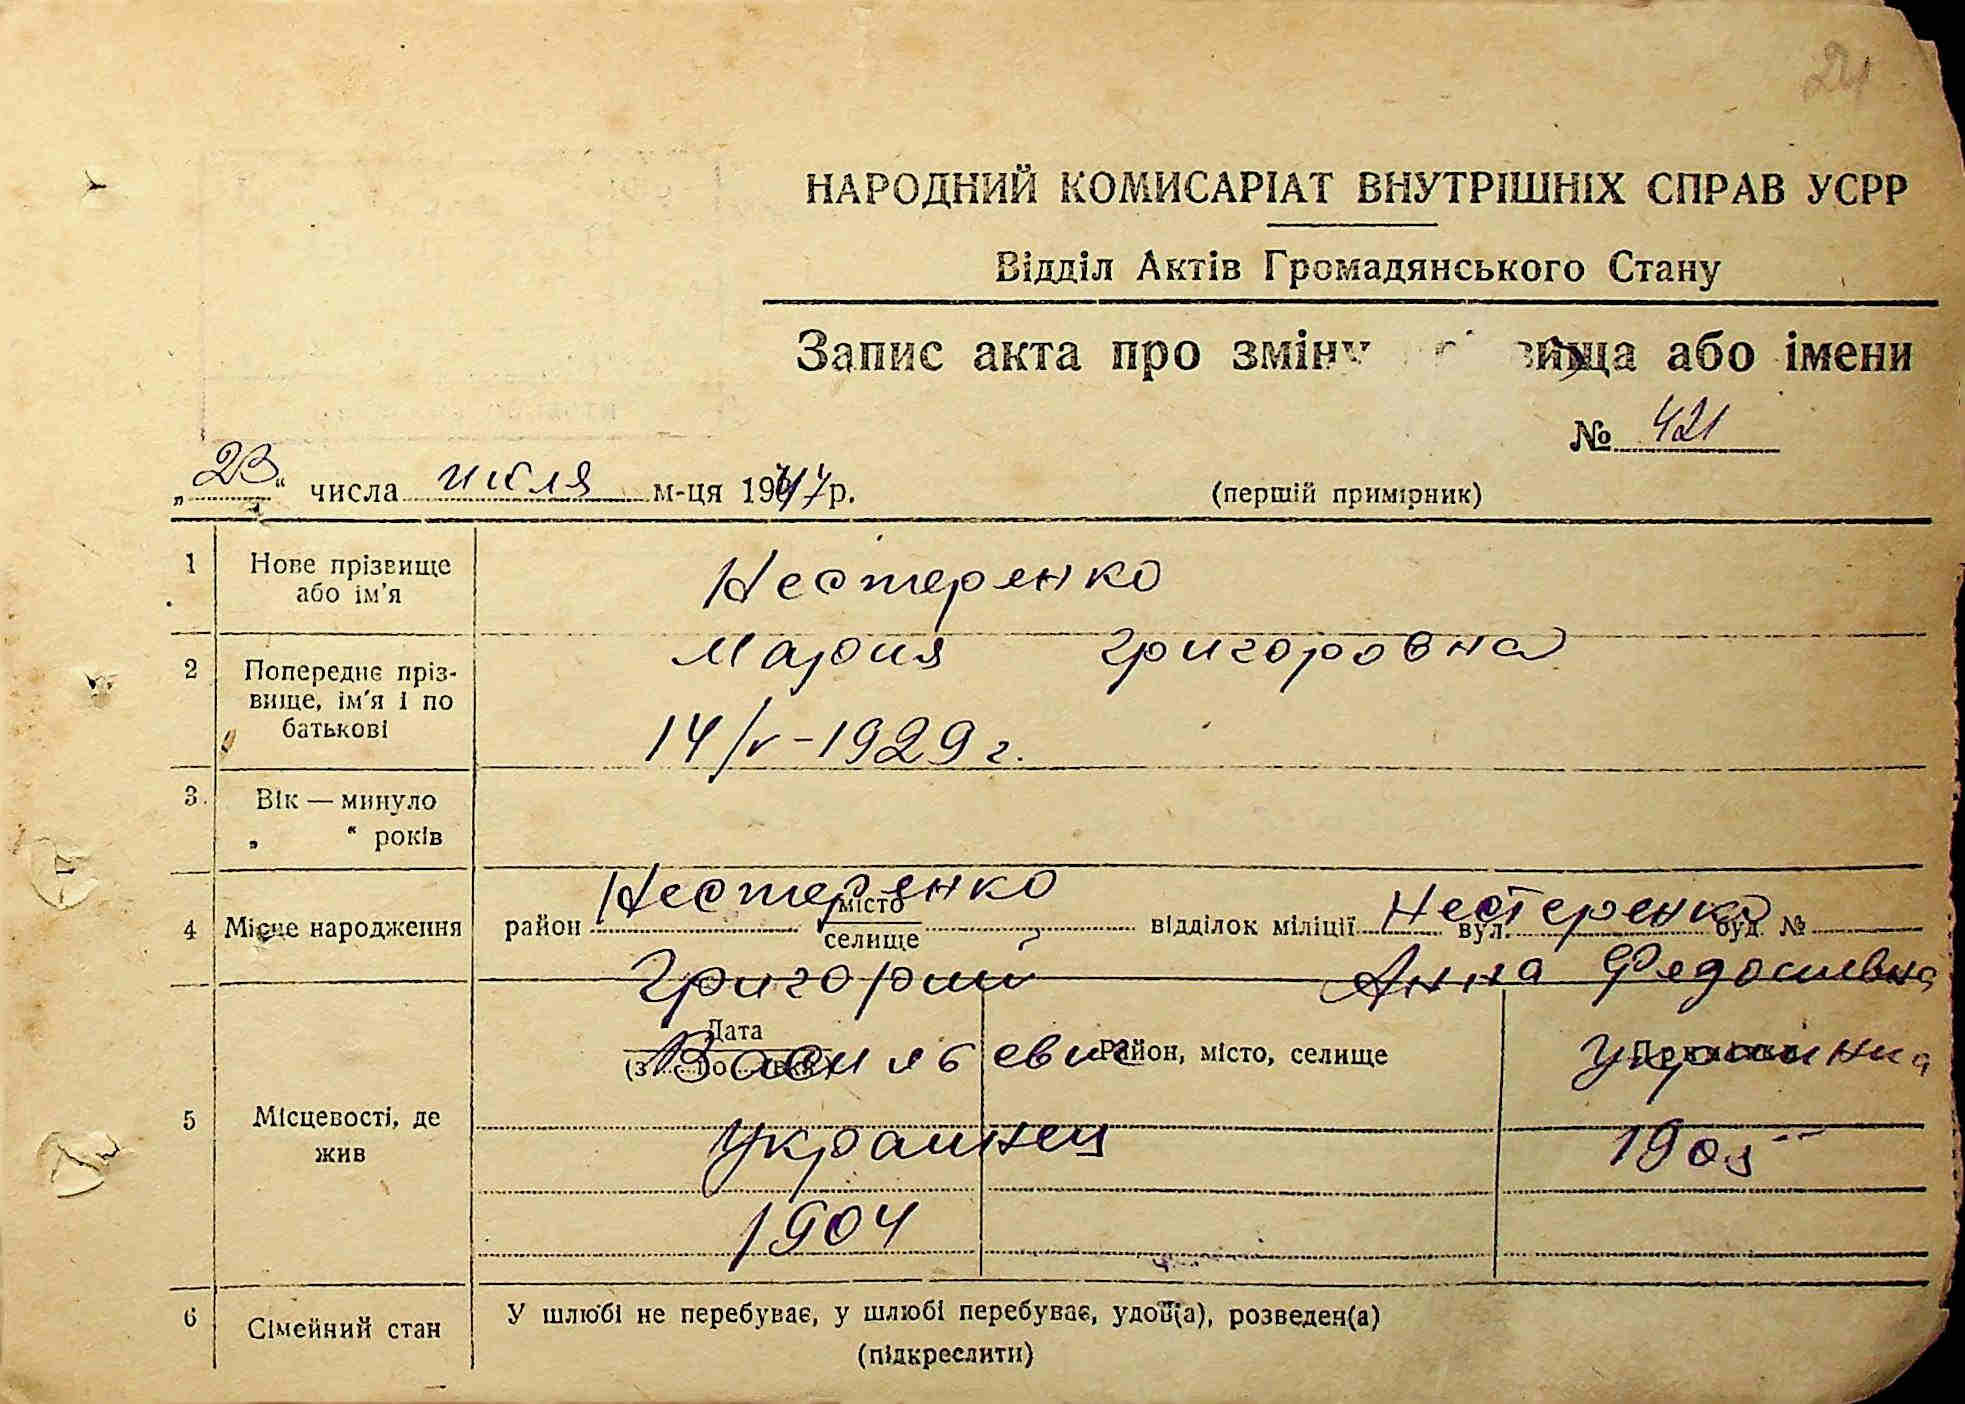 24
НАРОДНИЙ КОМИСАРІАТ ВНУТРІШНІХ СПРАВ УСРР
Відділ Актів Громадянського Стану
Запис акта про зміну або імени
№ 421
„23“ числа июля м-ця 1947 р. (перший примірник)
1 Нове прізвище або ім'я Нестеренко
2 Попереднє прізвище, ім'я і по батькові Мария Григоровна
14/V-1929 г.
3. Вік — минуло „ “ років
Нестеренко Нестеренко
4 Місце народження район місто селище відділок міліції вул. буд. №
Григорий Анна Федосиевна
Дата Район, місто, селище
Васильевич Украинка
5 Місцевості, де жив
Украинец 1905
1904
6 Сімейний стан У шлюбі не перебуває, у шлюбі перебуває, удов(а), розведен(а)
(підкреслити)